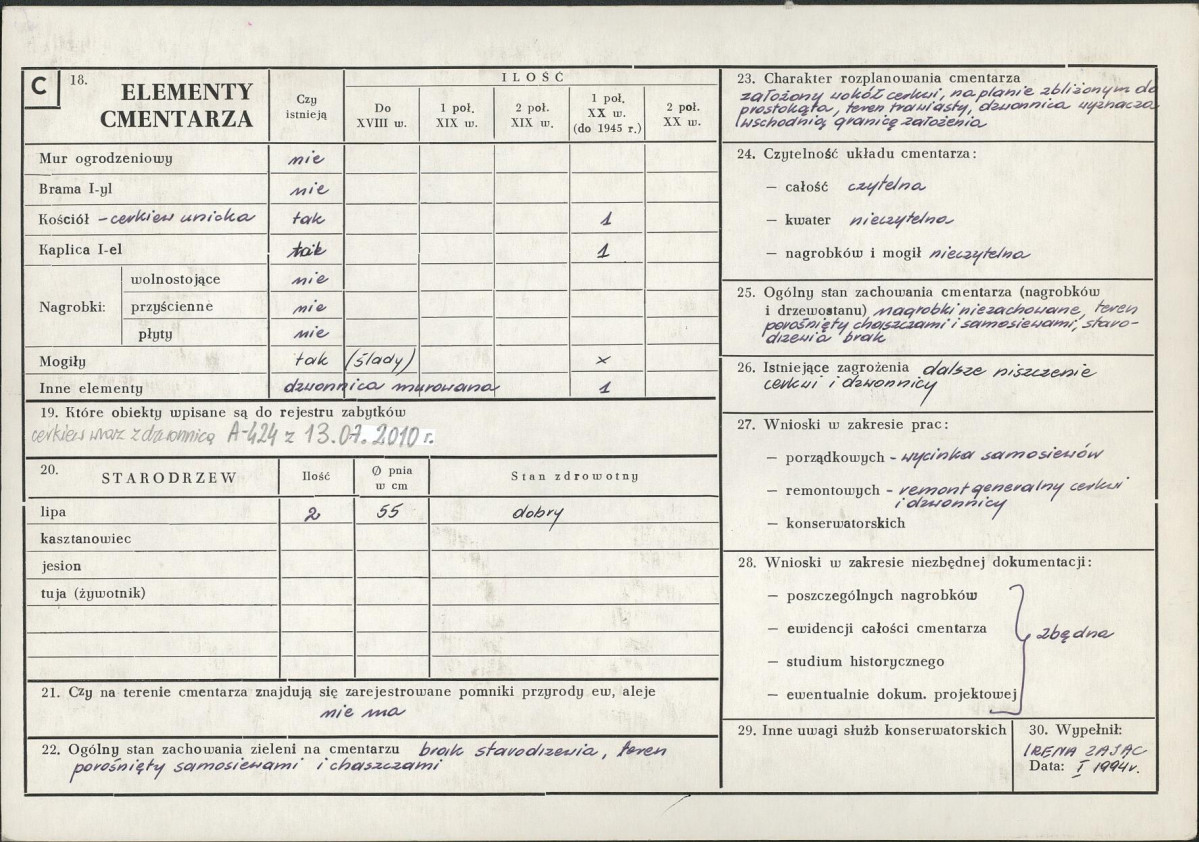 C 18. ELEMENTY CMENTARZA
Czy istnieją
ILOŚĆ
Do XVIII w.
1 poł. XIX w.
2 poł. XIX w.
1 poł. XX w. (do 1945 r.)
2 poł. XX w.
Mur ogrodzeniowy nie
Brama I-yl nie
Kościół - cerkiew unicka tak 1
Kaplica I-el tak 1
Nagrobki:
wolnostojące nie
przyścienne nie
płyty nie
Mogiły tak (ślady) x
Inne elementy dzwonnica murowana 1
19. Które obiekty wpisane są do rejestru zabytków
cerkiew wraz z dzwonnicą A-424 z 13.07.2010 r.
20. STARODRZEW Ilość Ø pnia w cm Stan zdrowotny
lipa 2 55 dobry
kasztanowiec
jesion
tuja (żywotnik)
21. Czy na terenie cmentarza znajdują się zarejestrowane pomniki przyrody ew, aleje
nie ma
22. Ogólny stan zachowania zieleni na cmentarzu brak starodrzewia, teren
porośnięty samosiewami i chaszczami
23. Charakter rozplanowania cmentarza
założony wokół cerkwi, na planie zbliżonym do
prostokąta, teren trawiasty, dzwonnica wyznacza
wschodnią granicę założenia
24. Czytelność układu cmentarza:
— całość czytelna
— kwater nieczytelna
— nagrobków i mogił nieczytelna
25. Ogólny stan zachowania cmentarza (nagrobków
i drzewostanu) nagrobki niezachowane, teren
porośnięty chaszczami i samosiewami, staro-
drzewia brak
26. Istniejące zagrożenia dalsze niszczenie
cerkwi i dzwonnicy
27. Wnioski w zakresie prac:
— porządkowych - wycinka samosiewów
— remontowych - remont generalny cerkwi
i dzwonnicy
— konserwatorskich
28. Wnioski w zakresie niezbędnej dokumentacji:
— poszczególnych nagrobków
— ewidencji całości cmentarza
zbędna
— studium historycznego
— ewentualnie dokum. projektowej
29. Inne uwagi służb konserwatorskich
30. Wypełnił:
IRENA ZAJĄC
Data: I 1994r.